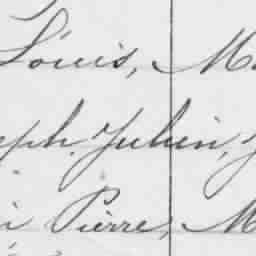 Louis, M
eph. Julien, J
i Pierre, M